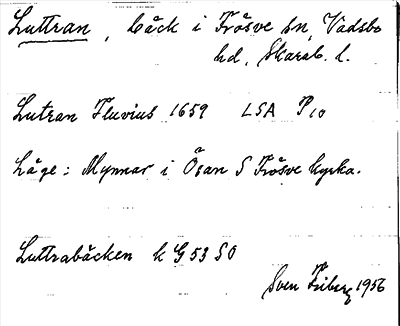 Luttran, bäck i Frösve sn, Vadsbo
hd, Skarab. l.
Lutran Fluvius 1659 LSA P10
Läge: Mynnar i Ösan S Frösve kyrka.
Luttrabäcken k G 53 SO
Sven Friberg 1956